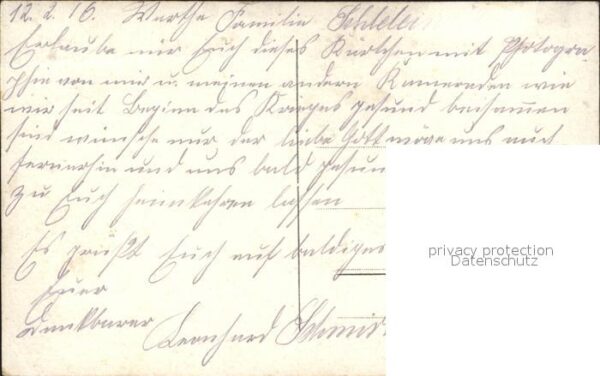 12. 2. 16. Werthe Familie Schlelei
Erlaube mir Euch dieses Kärtchen mit Photogra-
phie von mir u. meinen andern Kameraden wie
wir seit Beginn des Krieges gesund beisammen
sind wünsche nur der liebe Gott möge uns auch
fernerhin und uns bald gesun
zu Euch heimkehren lassen
Es grüßt Euch auf baldiges
Euer
dankbarer Leonhard Schmid
privacy protection
Datenschutz